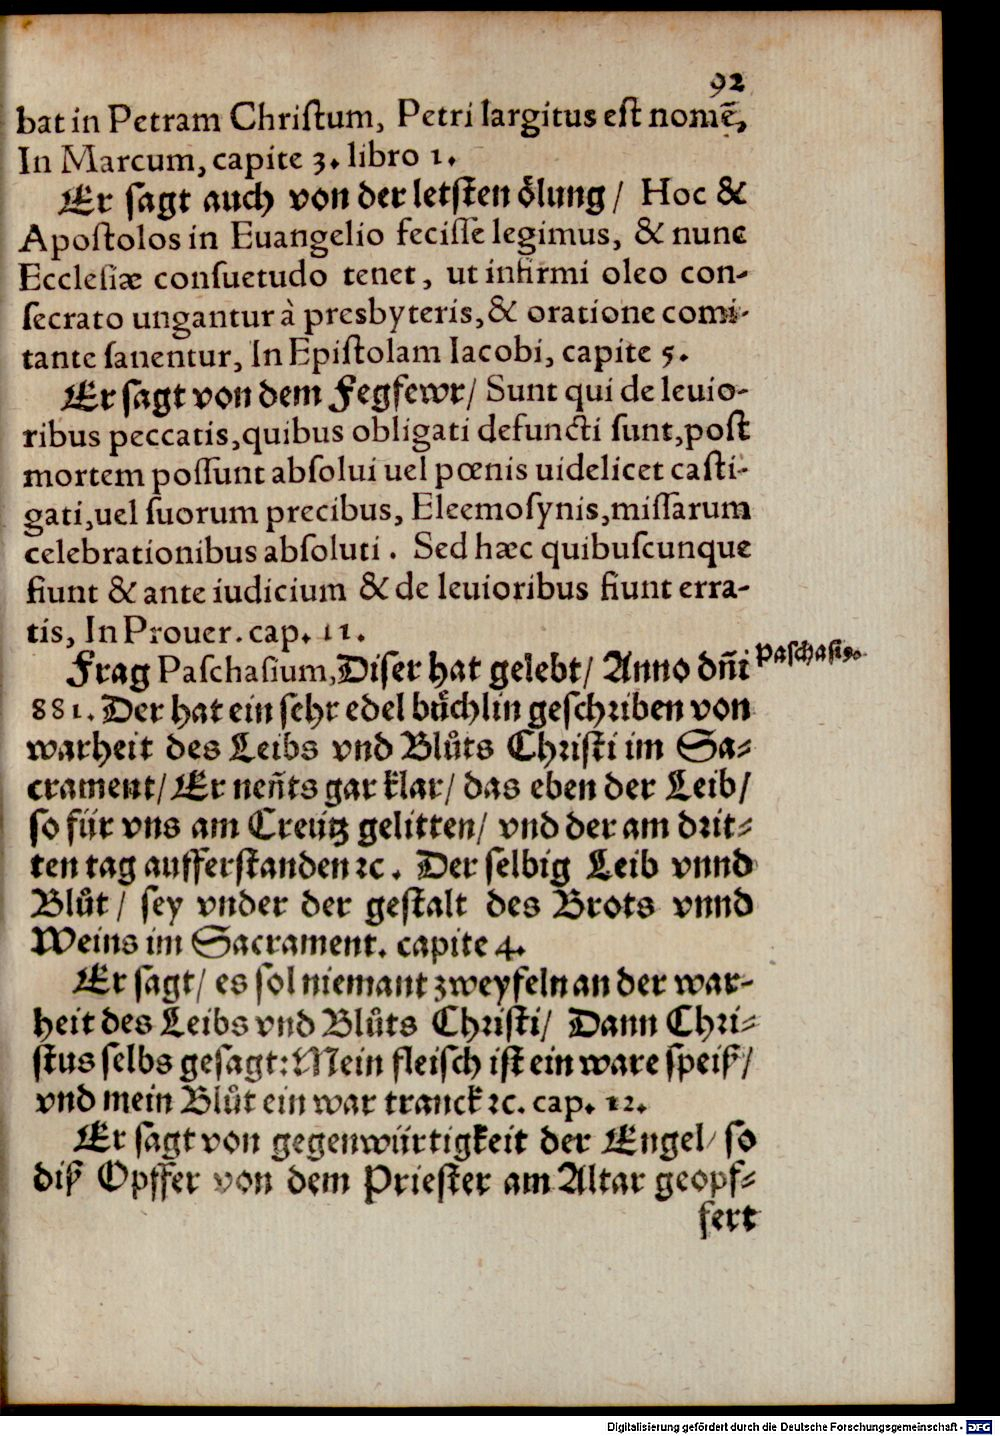 92
bat in Petram Chriſtum, Petri largitus eſt nomẽ,
In Marcum, capite 3. libro 1.
Er ſagt auch von der letſten ölung/ Hoc &
Apoſtolos in Euangelio feciſſe legimus, & nunc
Eccleſiæ conſuetudo tenet, ut infirmi oleo con-
ſecrato ungantur à presbyteris, & oratione comi-
tante ſanentur, In Epiſtolam Iacobi, capite 5.
Er ſagt von dem Fegfewr/ Sunt qui de leuio-
ribus peccatis, quibus obligati defuncti ſunt, poſt
mortem poſſunt abſolui uel pœnis uidelicet caſti-
gati, uel ſuorum precibus, Eleemoſynis, miſſarum
celebrationibus abſoluti. Sed hæc quibuſcunque
fiunt & ante iudicium & de leuioribus fiunt erra-
tis, In Prouer. cap. 11.
Frag Paſchaſium, Diſer hat gelebt/ Anno dñi
Paſchaſiꝰ.
881. Der hat ein ſehr edel bůchlin geſchriben von
warheit des Leibs vnd Blůts Chriſti im Sa-
crament/ Er neñts gar klar/ das eben der Leib/
ſo für vns am Creütz gelitten/ vnd der am drit-
ten tag aufferſtanden ꝛc. Der ſelbig Leib vnnd
Blůt/ ſey vnder der geſtalt des Brots vnnd
Weins im Sacrament. capite 4.
Er ſagt/ es ſol niemant zweyfeln an der war-
heit des Leibs vnd Blůts Chriſti/ Dann Chri-
ſtus ſelbs geſagt: Mein fleiſch iſt ein ware ſpeiß/
vnd mein Blůt ein war tranck ꝛc. cap. 12.
Er ſagt von gegenwürtigkeit der Engel/ ſo
diß Opffer von dem Prieſter am Altar geopf-
fert
Digitalisierung gefördert durch die Deutsche Forschungsgemeinschaft - DFG